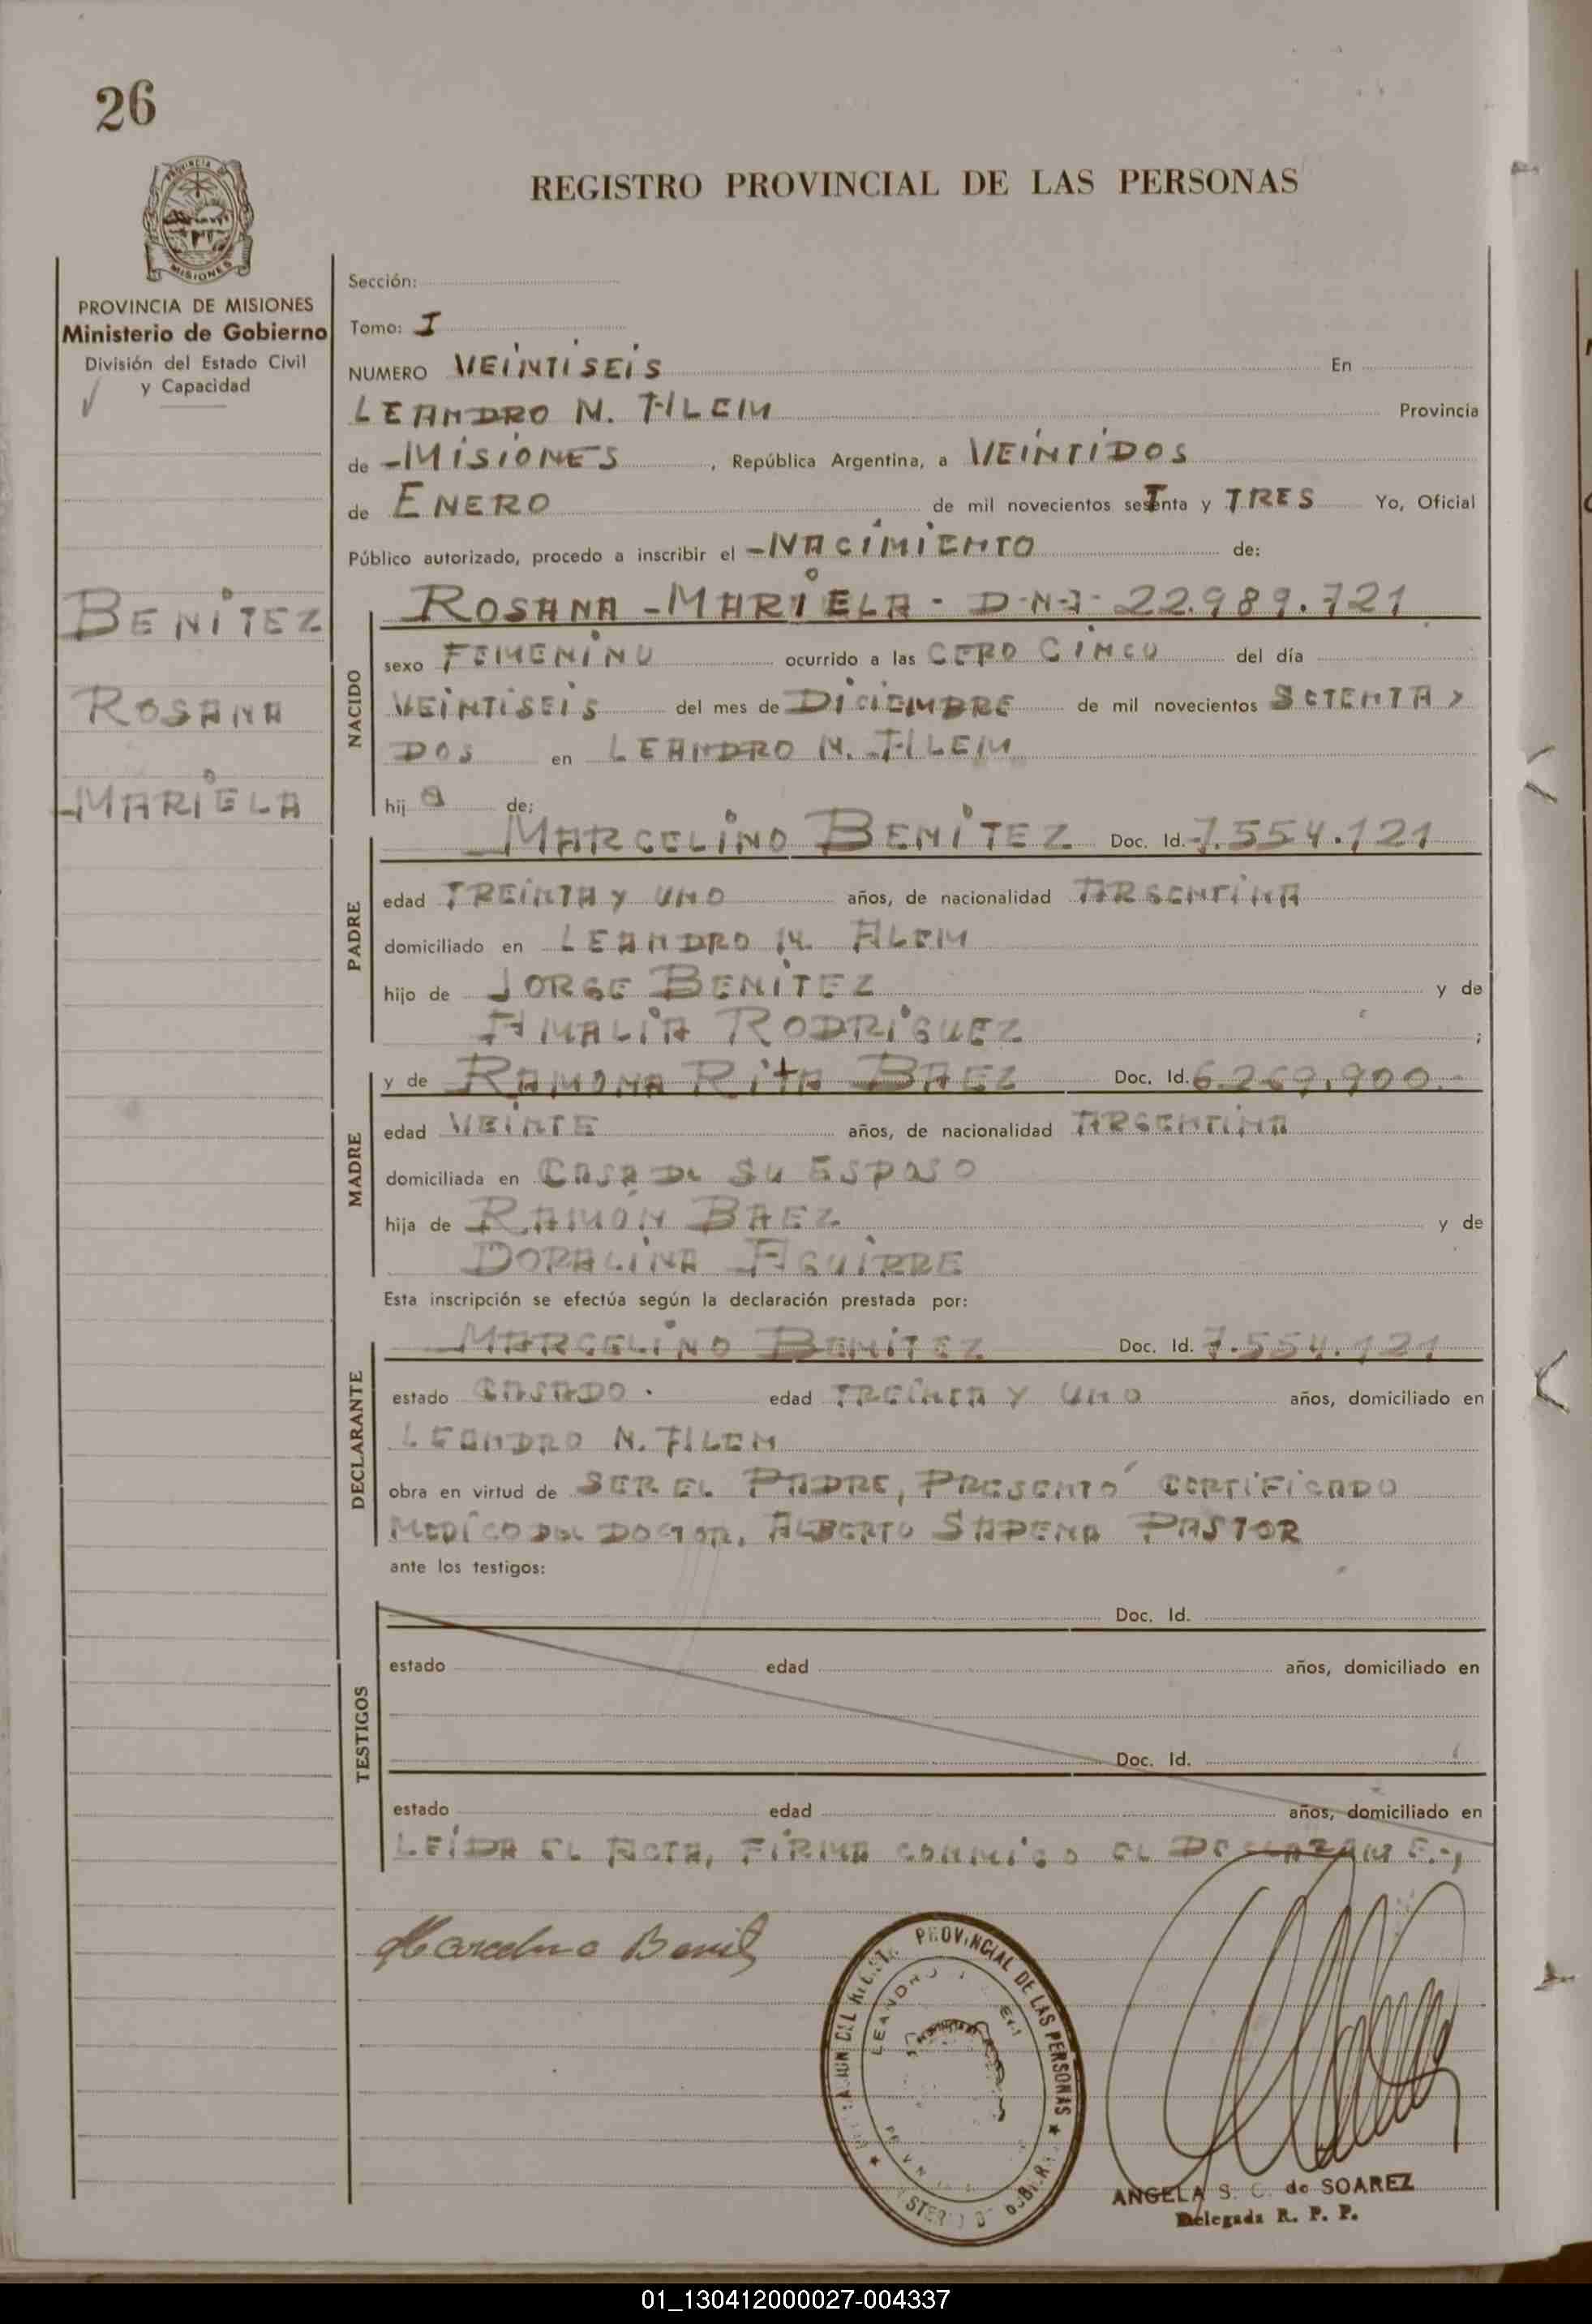 26
REGISTRO PROVINCIAL DE LAS PERSONAS
PROVINCIA DE
MISIONES
PROVINCIA DE MISIONES
Ministerio de Gobierno
División del Estado Civil
y Capacidad
BENITEZ
ROSANA
MARIELA
Sección:
Tomo: I
NUMERO VEINTISEIS En
LEANDRO N. ALEM Provincia
de MISIONES, República Argentina, a VEINTIDOS
de ENERO de mil novecientos setenta y TRES Yo, Oficial
Público autorizado, procedo a inscribir el NACIMIENTO de:
NACIDO
ROSANA MARIELA - D-N-I- 22.989.721
sexo FEMENINO ocurrido a las CERO CINCO del día
VEINTISEIS del mes de DICIEMBRE de mil novecientos SETENTA Y
DOS en LEANDRO N. ALEM
hij a de:
PADRE
MARCELINO BENITEZ Doc. Id. 7.554.121
edad TREINTA Y UNO años, de nacionalidad ARGENTINA
domiciliado en LEANDRO N. ALEM
hijo de JORGE BENITEZ y de
AMALIA RODRIGUEZ ;
MADRE
y de RAMONA RITA BAEZ Doc. Id. 6.269.900.-
edad VEINTE años, de nacionalidad ARGENTINA
domiciliada en CASA DE SU ESPOSO
hija de RAMÓN BAEZ y de
DORALINA AGUIRRE
Esta inscripción se efectúa según la declaración prestada por:
DECLARANTE
MARCELINO BENITEZ Doc. Id. 7.554.121
estado CASADO. edad TREINTA Y UNO años, domiciliado en
LEANDRO N. ALEM
obra en virtud de SER EL PADRE, PRESENTÓ CERTIFICADO
MEDICO DEL DOCTOR, ALBERTO SAPENA PASTOR
ante los testigos:
TESTIGOS
Doc. Id.
estado edad años, domiciliado en
Doc. Id.
estado edad años, domiciliado en
LEÍDA EL ACTA, FIRMA CONMIGO EL DECLARANTE.-,
Marcelino Benitez
PROVINCIAL DE LAS PERSONAS
LEANDRO
ANGELA S. C. de SOAREZ
Delegada R. P. P.
01_130412000027-004337